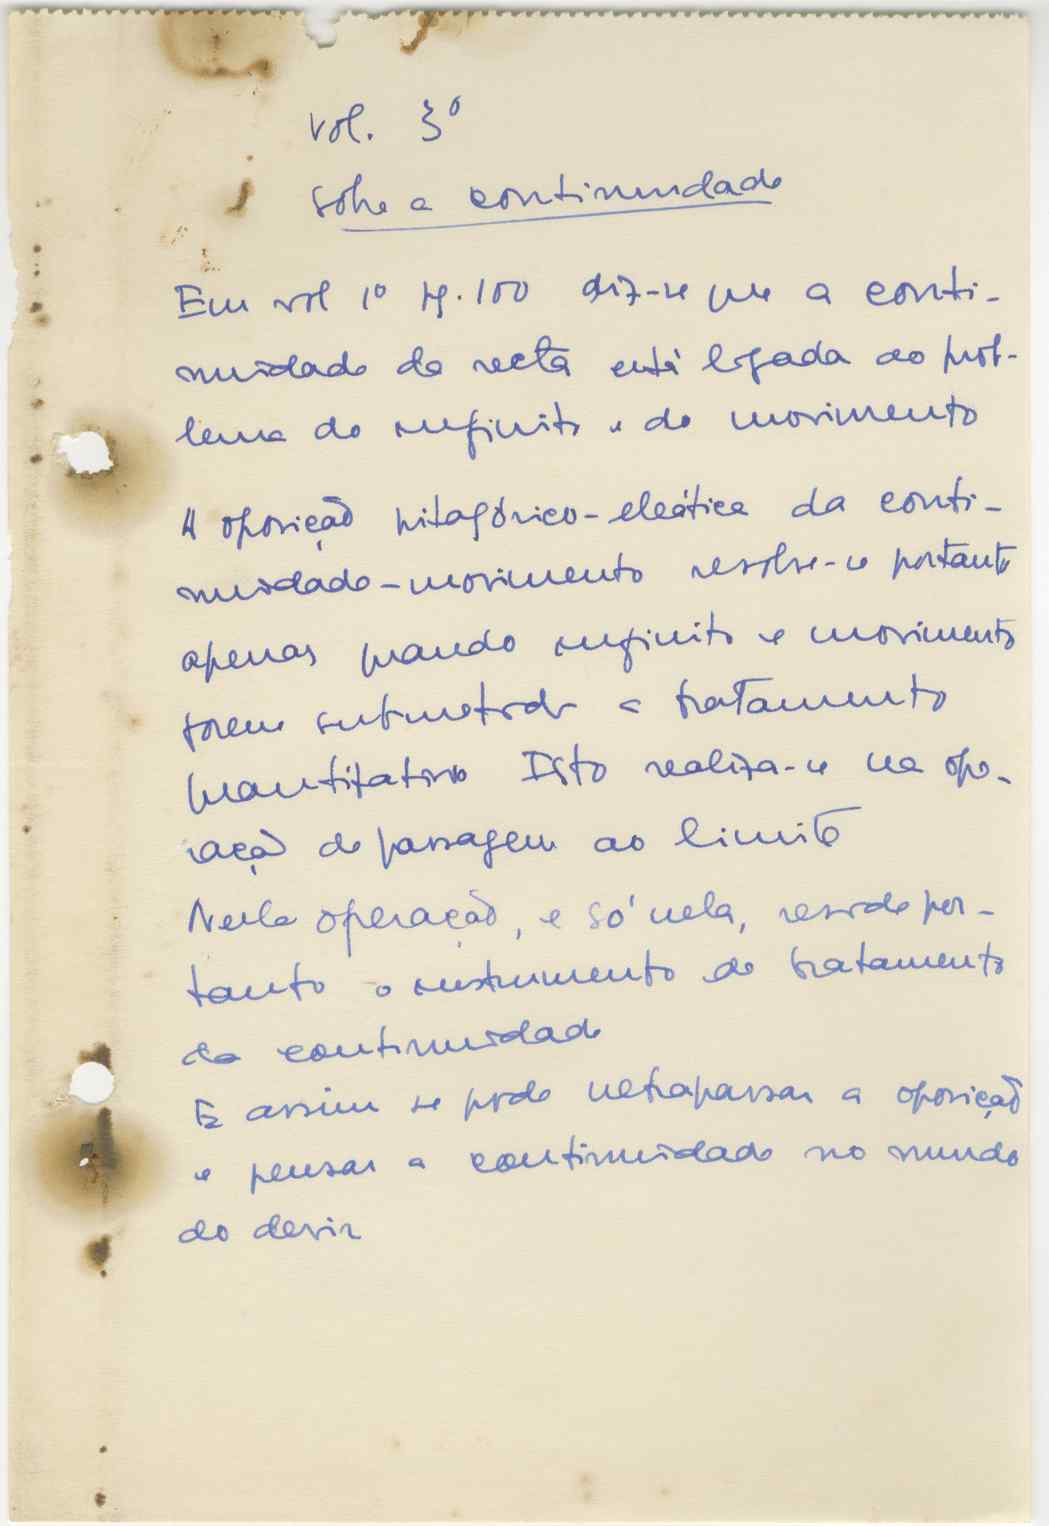 Vol. 3º
Sobre a continuidade
Em vol 1º pg. 100 diz-se que a conti-
nuidade da recta está ligada ao prob-
lema do infinito e do movimento
A oposição pitagórico-eleática da conti-
nuidade-movimento resolve-se portanto
apenas quando infinito e movimento
forem submetidos a tratamento
quantitativo Isto realiza-se na ope-
ração de passagem ao limite
Nesta operação, e só nela, reside por-
tanto o instrumento de tratamento
da continuidade
E assim se pode ultrapassar a oposição
e pensar a continuidade no mundo
do devir